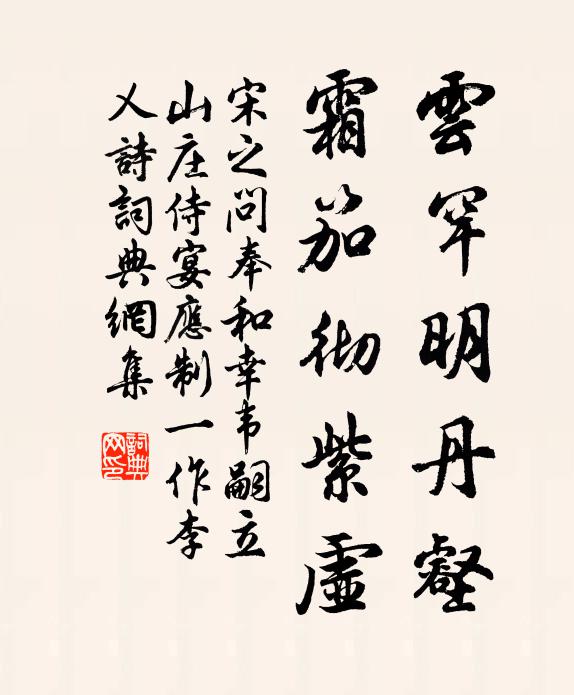 雲罕明丹壑
霜笳彻紫虛
宋之问奉和幸韦嗣立
山庄侍宴應制一作李
乂詩詞典網集